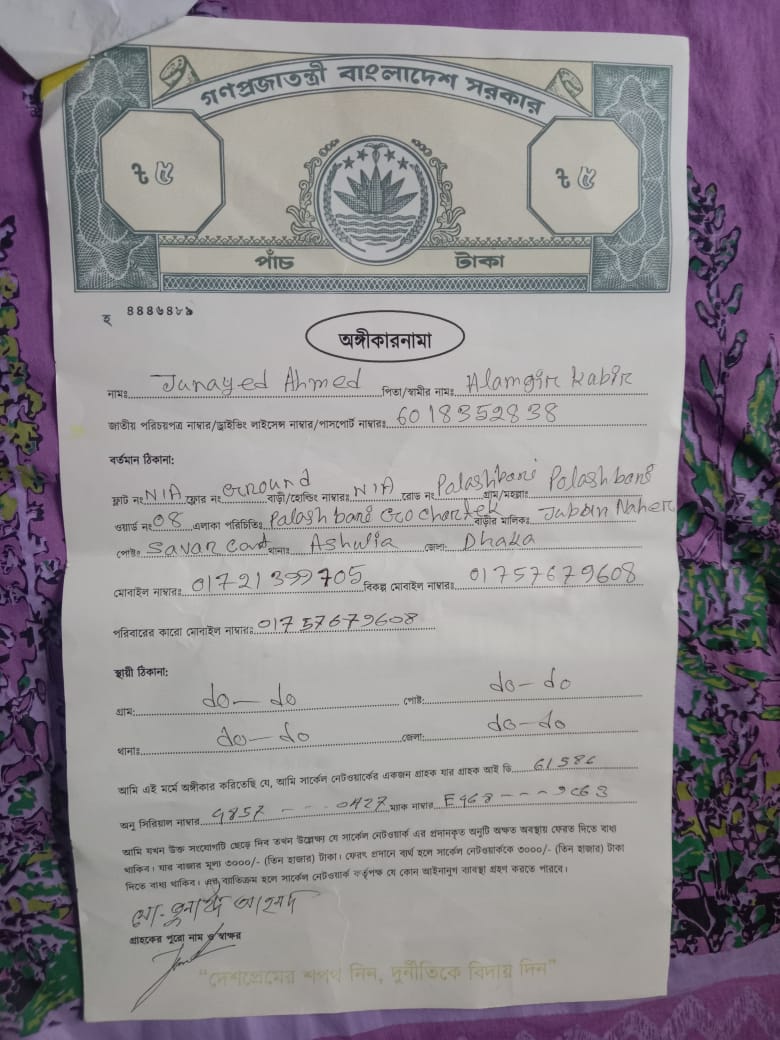 গণপ্রজাতন্ত্রী বাংলাদেশ সরকার
৳ ৫ ৳ ৫
পাঁচ টাকা
হ ৪৪৪৬৪৮৯
অঙ্গীকারনামা
নামঃ Junayed Ahmed পিতা/স্বামীর নামঃ Alamgir Kabir
জাতীয় পরিচয়পত্র নাম্বার/ড্রাইভিং লাইসেন্স নাম্বার/পাসপোর্ট নাম্বারঃ 6018352838
বর্তমান ঠিকানা:
ফ্লাট নংঃ N/A ফ্লোর নংঃ Ground বাড়ী/হোল্ডিং নাম্বারঃ N/A রোড নংঃ Palashbari গ্রাম/মহল্লাঃ Palashbari
ওয়ার্ড নংঃ 08 এলাকা পরিচিতিঃ Palashbari Gochartek বাড়ীর মালিকঃ Naher
পোষ্টঃ Savar Cant থানাঃ Ashulia জেলা: Dhaka
মোবাইল নাম্বারঃ 01721399705 বিকল্প মোবাইল নাম্বারঃ 01757679608
পরিবারের কারো মোবাইল নাম্বারঃ 01757679608
স্থায়ী ঠিকানা:
গ্রাম: do-do পোষ্ট: do-do
থানাঃ do-do জেলা: do-do
আমি এই মর্মে অঙ্গীকার করিতেছি যে, আমি সার্কেল নেটওয়ার্কের একজন গ্রাহক যার গ্রাহক আই ডি 61586
অনু সিরিয়াল নাম্বার 4857 --- 0427 ম্যাক নাম্বার F468 --- 9C63
আমি যখন উক্ত সংযোগটি ছেড়ে দিব তখন উল্লেখ্য যে সার্কেল নেটওয়ার্ক এর প্রদানকৃত অনুটি অক্ষত অবস্থায় ফেরত দিতে বাধ্য
থাকিব। যার বাজার মূল্য ৩০০০/- (তিন হাজার) টাকা। ফেরৎ প্রদানে ব্যর্থ হলে সার্কেল নেটওয়ার্ককে ৩০০০/- (তিন হাজার) টাকা
দিতে বাধ্য থাকিব। এর ব্যতিক্রম হলে সার্কেল নেটওয়ার্ক কর্তৃপক্ষ যে কোন আইনানুগ ব্যবস্থা গ্রহণ করতে পারবে।
মো- জুনায়েদ আহমদ
গ্রাহকের পুরো নাম ও স্বাক্ষর
"দেশপ্রেমের শপথ নিন, দুর্নীতিকে বিদায় দিন"